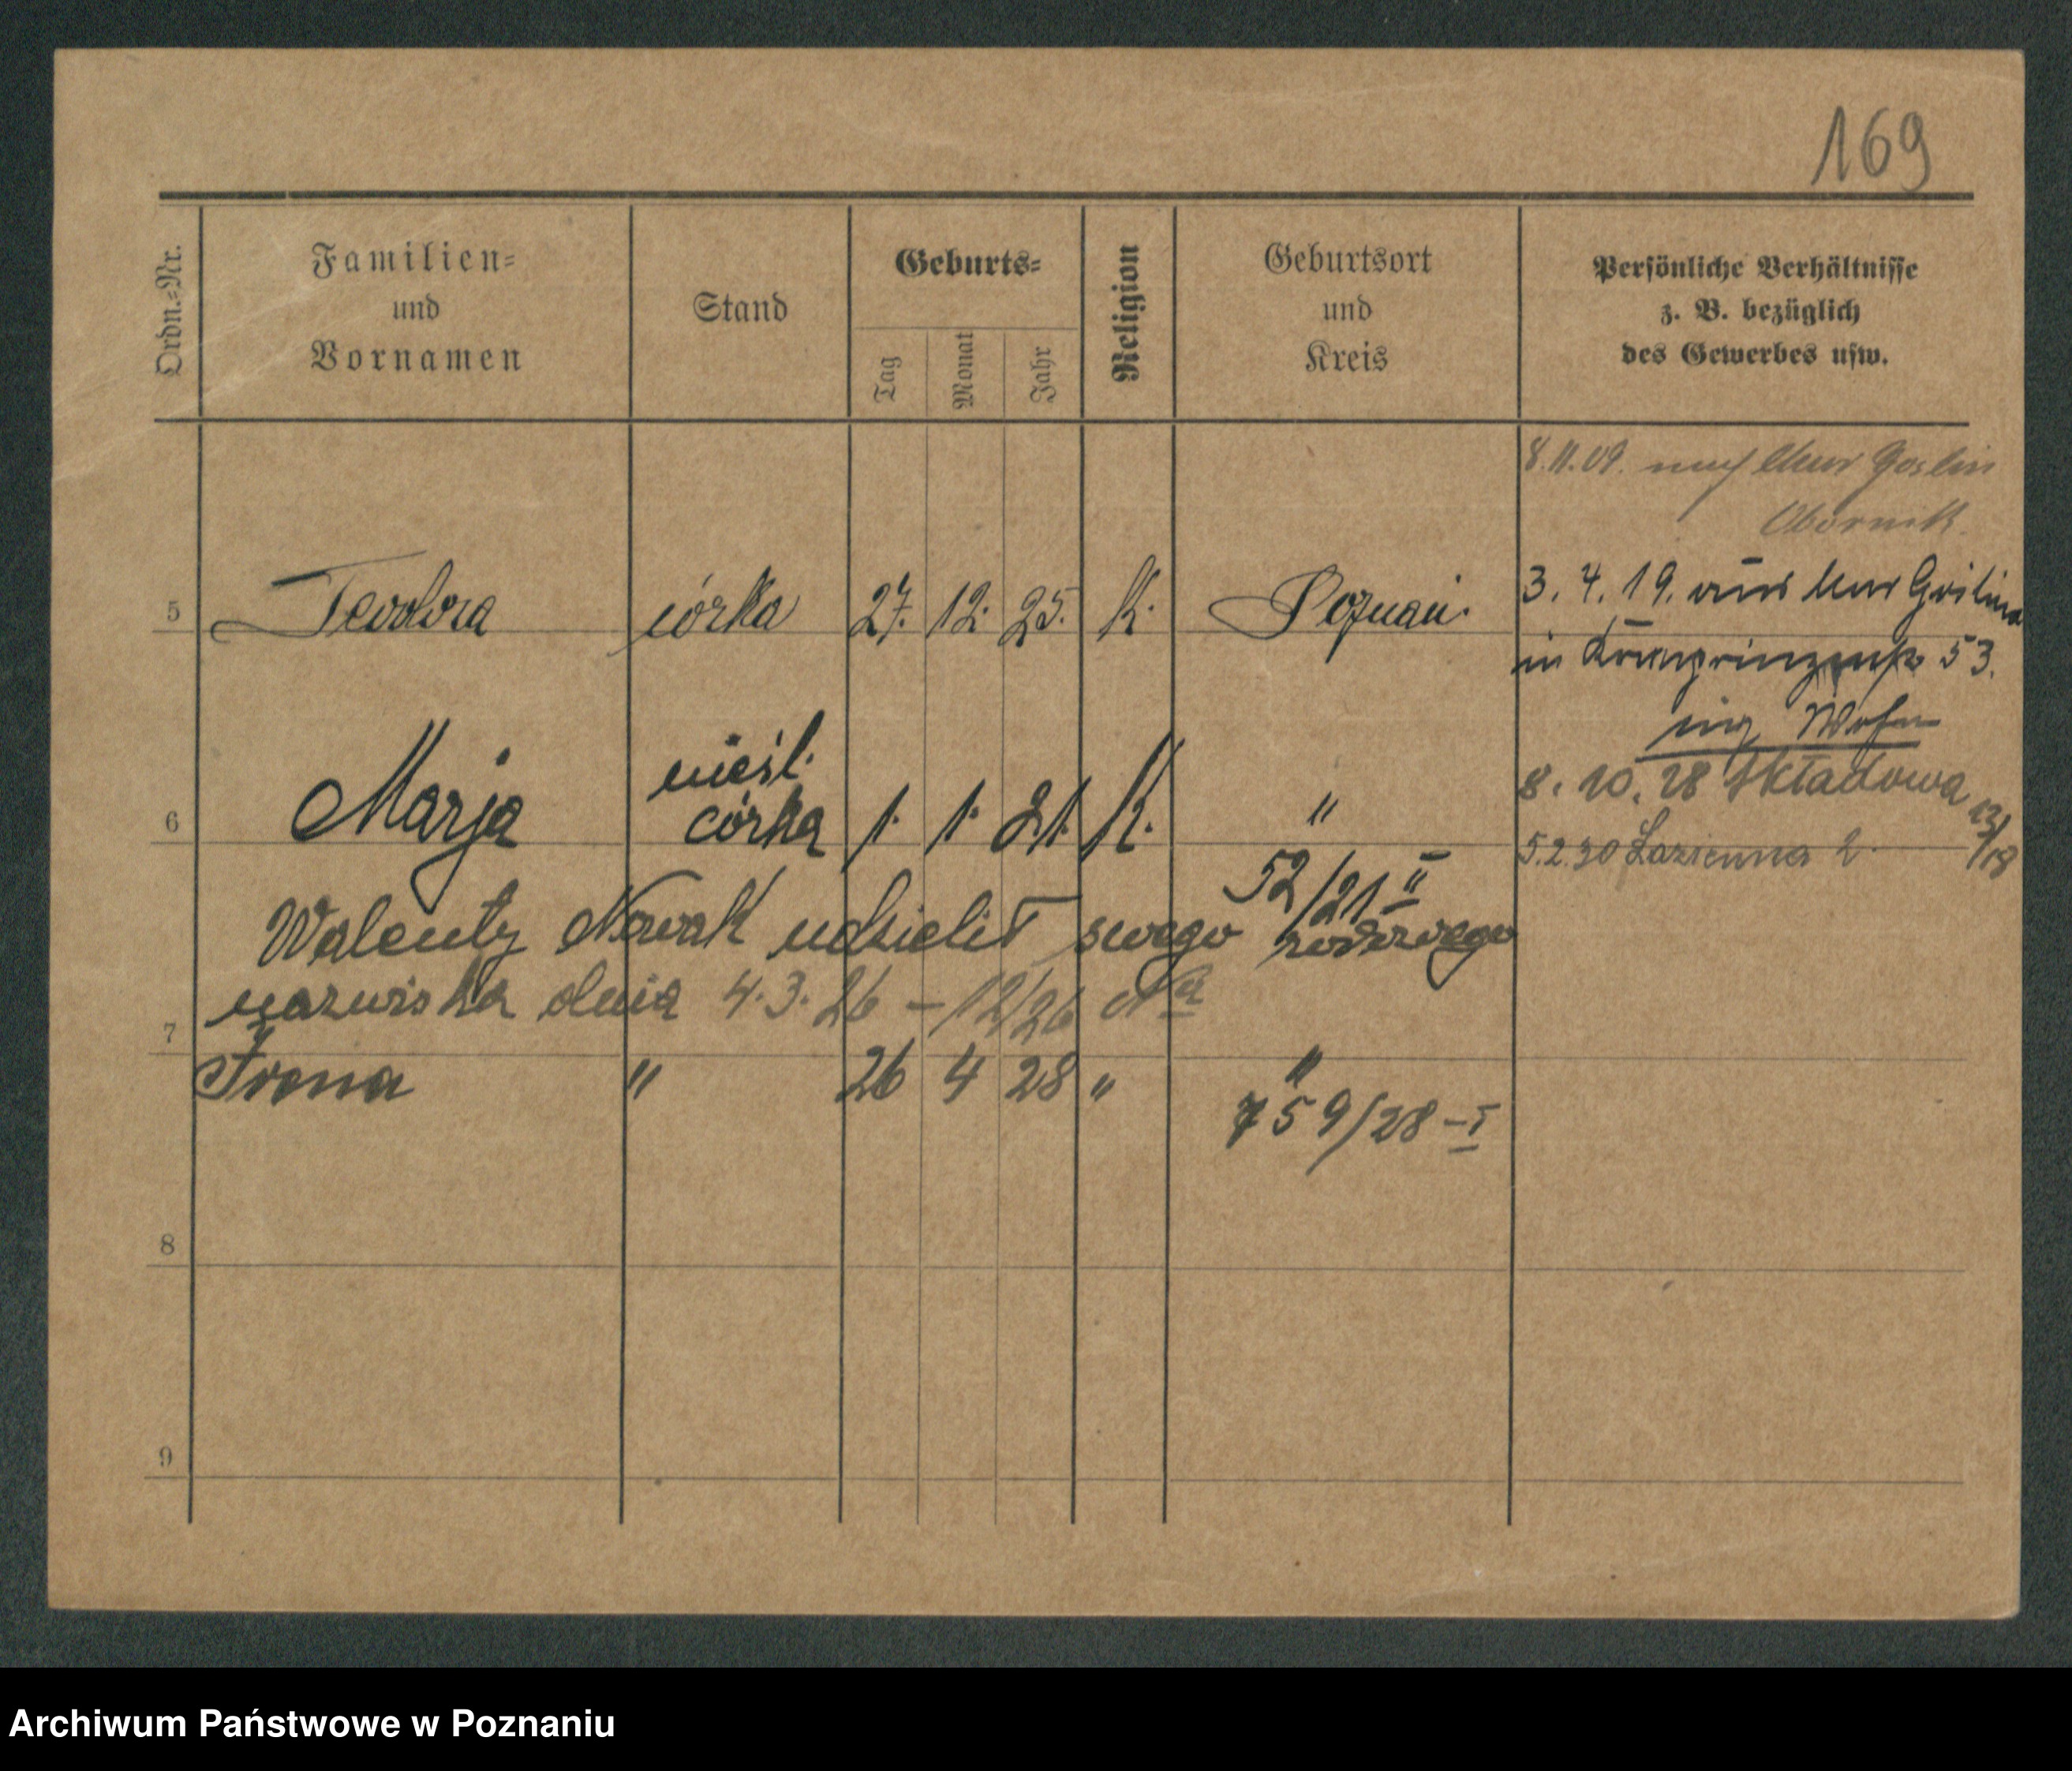 169
Ordn.-Nr.
Familien-
und
Vornamen
Stand
Geburts-
Tag
Monat
Jahr
Religion
Geburtsort
und
Kreis
Persönliche Verhältnisse
z. B. bezüglich
des Gewerbes usw.
8.11.09. nach Mur Goslin
Obornik.
5 Teodora córka 27. 12. 25. K. Poznań.
3. 4. 19. aus Mur Goslina
in Kronprinzenstr 53.
8. 10. 28 Składowa 13/18
6 Marja nieśl. córka 1. 1. 21. K. "
52/21 II
5.2.30 Łazienna 2
Walenty Nowak udzielił swego rodowego
nazwiska dnia 4.3.26 – 12/26
7
Irena " 26 4 28 " "
759/28 – I
8
9
Archiwum Państwowe w Poznaniu